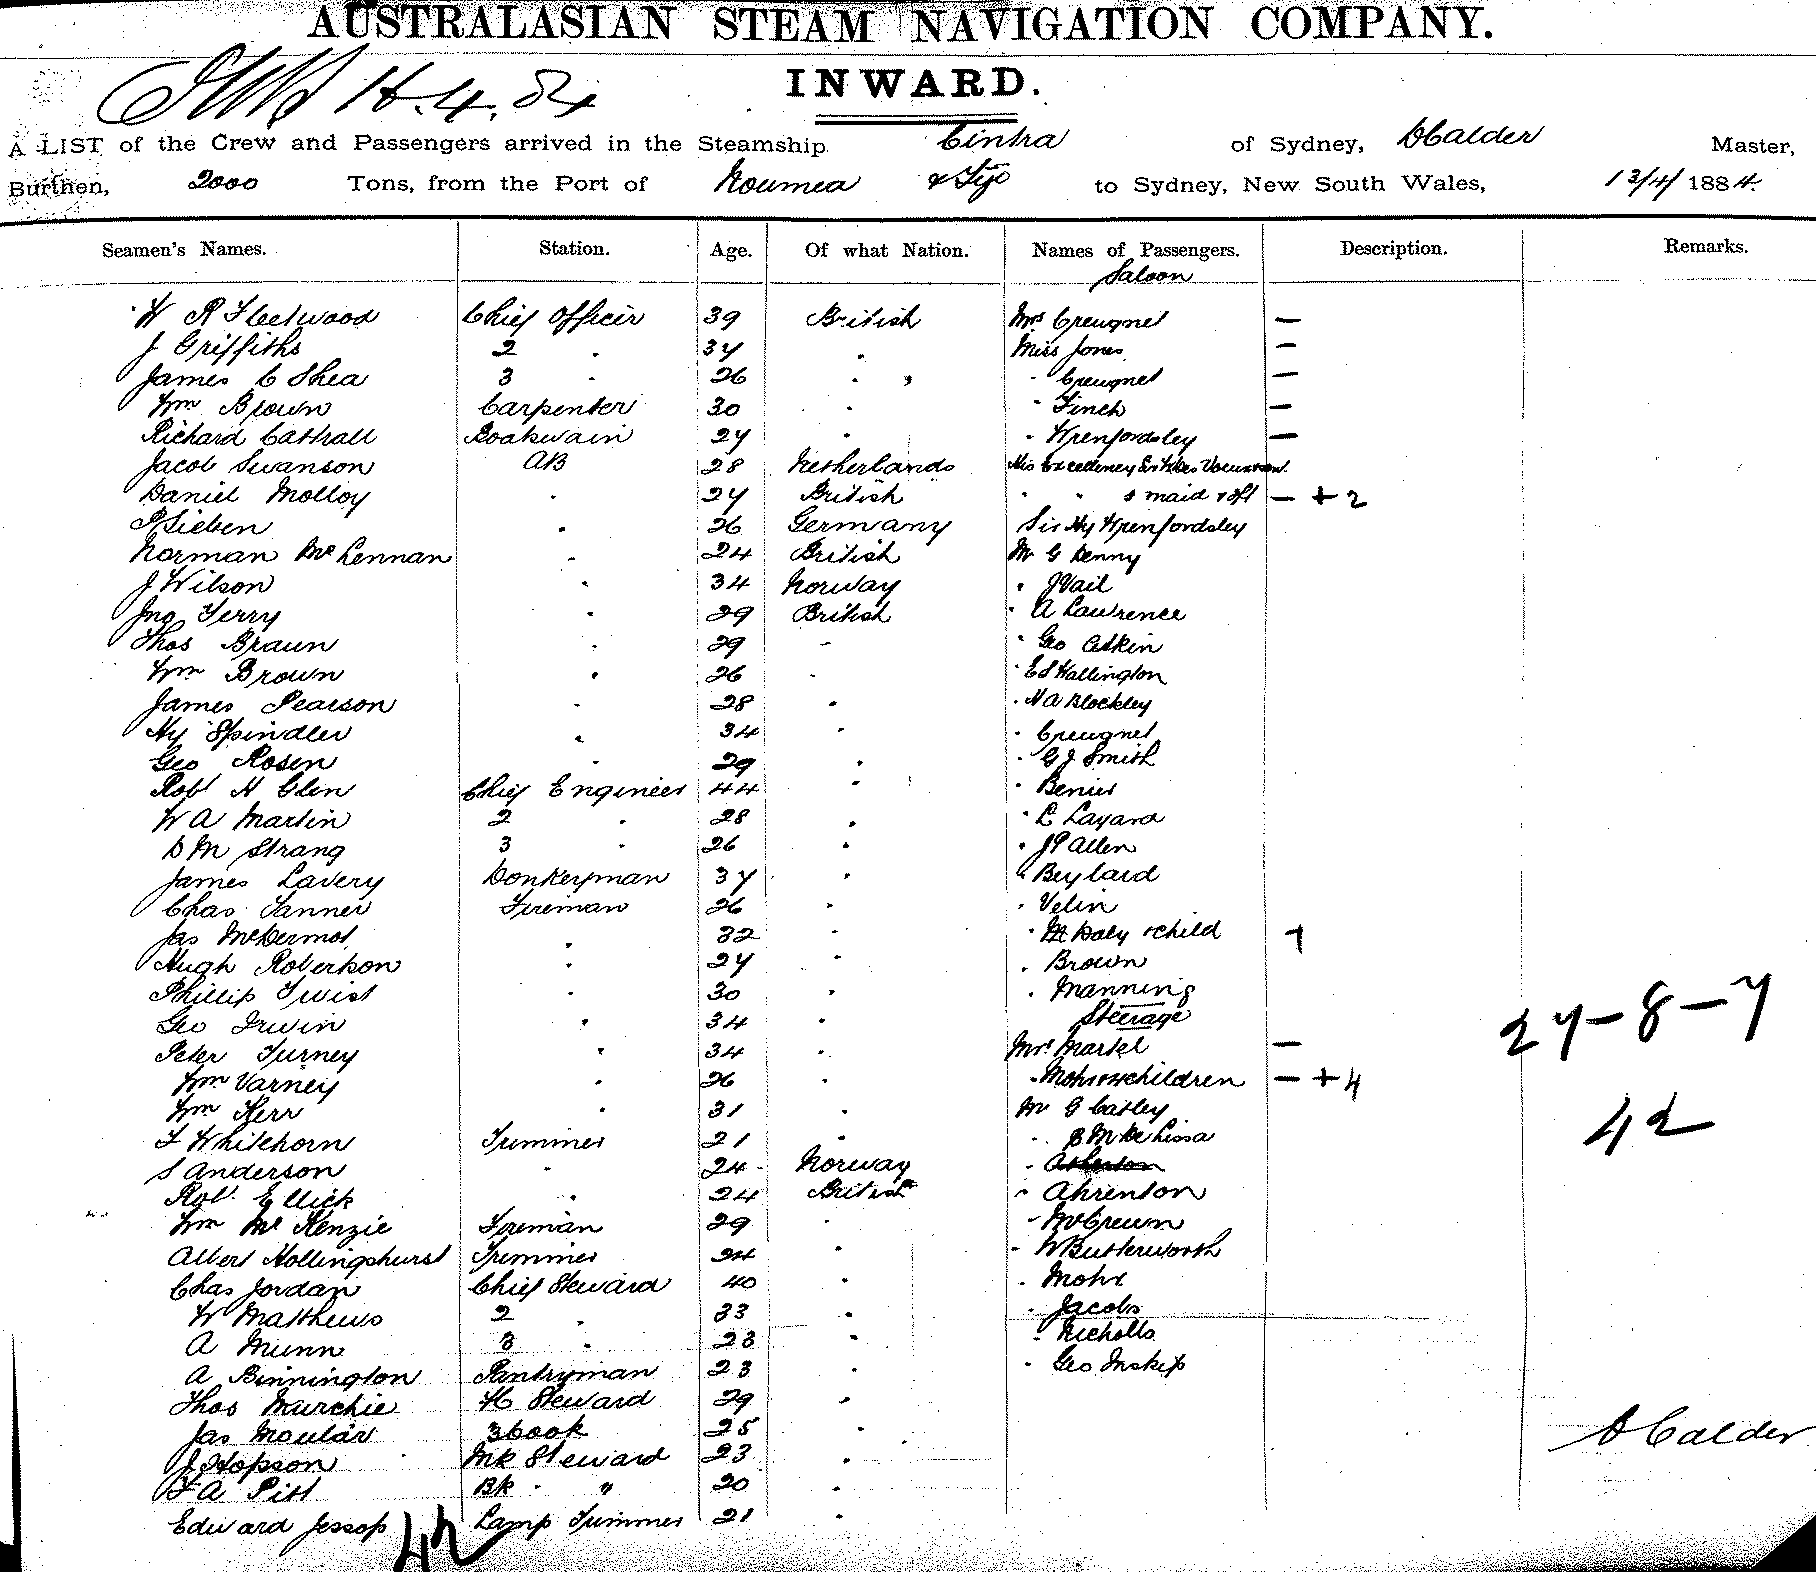 AUSTRALASIAN STEAM NAVIGATION COMPANY.
INWARD.
14.4.84
A LIST of the Crew and Passengers arrived in the Steamship Cintra of Sydney, D Calder Master,
Burthen, 2000 Tons, from the Port of Noumea & Fiji to Sydney, New South Wales, 13/4/1884.
Seamen's Names. Station. Age. Of what Nation. Names of Passengers. Description. Remarks.
Saloon
W R Fleetwood Chief Officer 39 British Mrs Creugnet —
J Griffiths 2 " 37 " Miss Jones —
James C Shea 3 " 26 " " " Creugnet —
Wm Brown Carpenter 30 " " Finch —
Richard Cattrall Boatswain 27 " " Wrenfordsley —
Jacob Swanson AB 28 Netherlands His Excellency
Daniel Molloy " 27 British " " & maid & — + 2
P Sieben " 26 Germany Sir Hy Wrenfordsley
Norman McLennan " 24 British Mr G Kenny
J Wilson " 34 Norway " J Vail
Jno Terry " 29 British " A Lawrence
Thos Braun " 29 " " Geo Atkin
Wm Brown " 26 " " E S Wallington
James Pearson " 28 " " H A Blockley
Hy Spindler " 34 " " Creugnet
Geo Rosen " 29 " " G J Smith
Robt H Glen Chief Engineer 44 " " Benier
W A Martin 2 " 28 " " L Layard
D M Strang 3 " 26 " " J P Allen
James Lavery Donkeyman 37 " " Beylard
Chas Tanner Fireman 26 " " Velin
Jas McDermot " 32 " " M Daly & child +
Hugh Robertson " 27 " " Brown
Phillip Twist " 30 " " Manning
Steerage
Geo Irwin " 34 "
Peter Turney " 34 " Mrs Martel — 27-8-7
Wm Varney " 26 " " Mohr & 4 children — + 4
Wm Kerr " 31 " Mr G Catley 42
F Whitehorn Trimmer 21 " " S M De Lissa
S Anderson " 24 Norway "
Robt Ellick " 24 British " Ahrenton
Wm McKenzie Fireman 29 " " McCreun
Albert Hollingshurst Trimmer 24 " " W Butterworth
Chas Jordan Chief Steward 40 " " Mohr
W Matthews 2 " 33 " " Jacobs
A Munn 3 " 23 " " Nicholls
A Binnington Pantryman 23 " " Geo Inskip
Thos Murchie Steward 29 "
Jas Moular 3 Cook 25 " D Calder
J Hopson Steward 23 "
F A Pitt Bk " " 20 "
Edward Jessop Lamp Trimmer 21 "
42